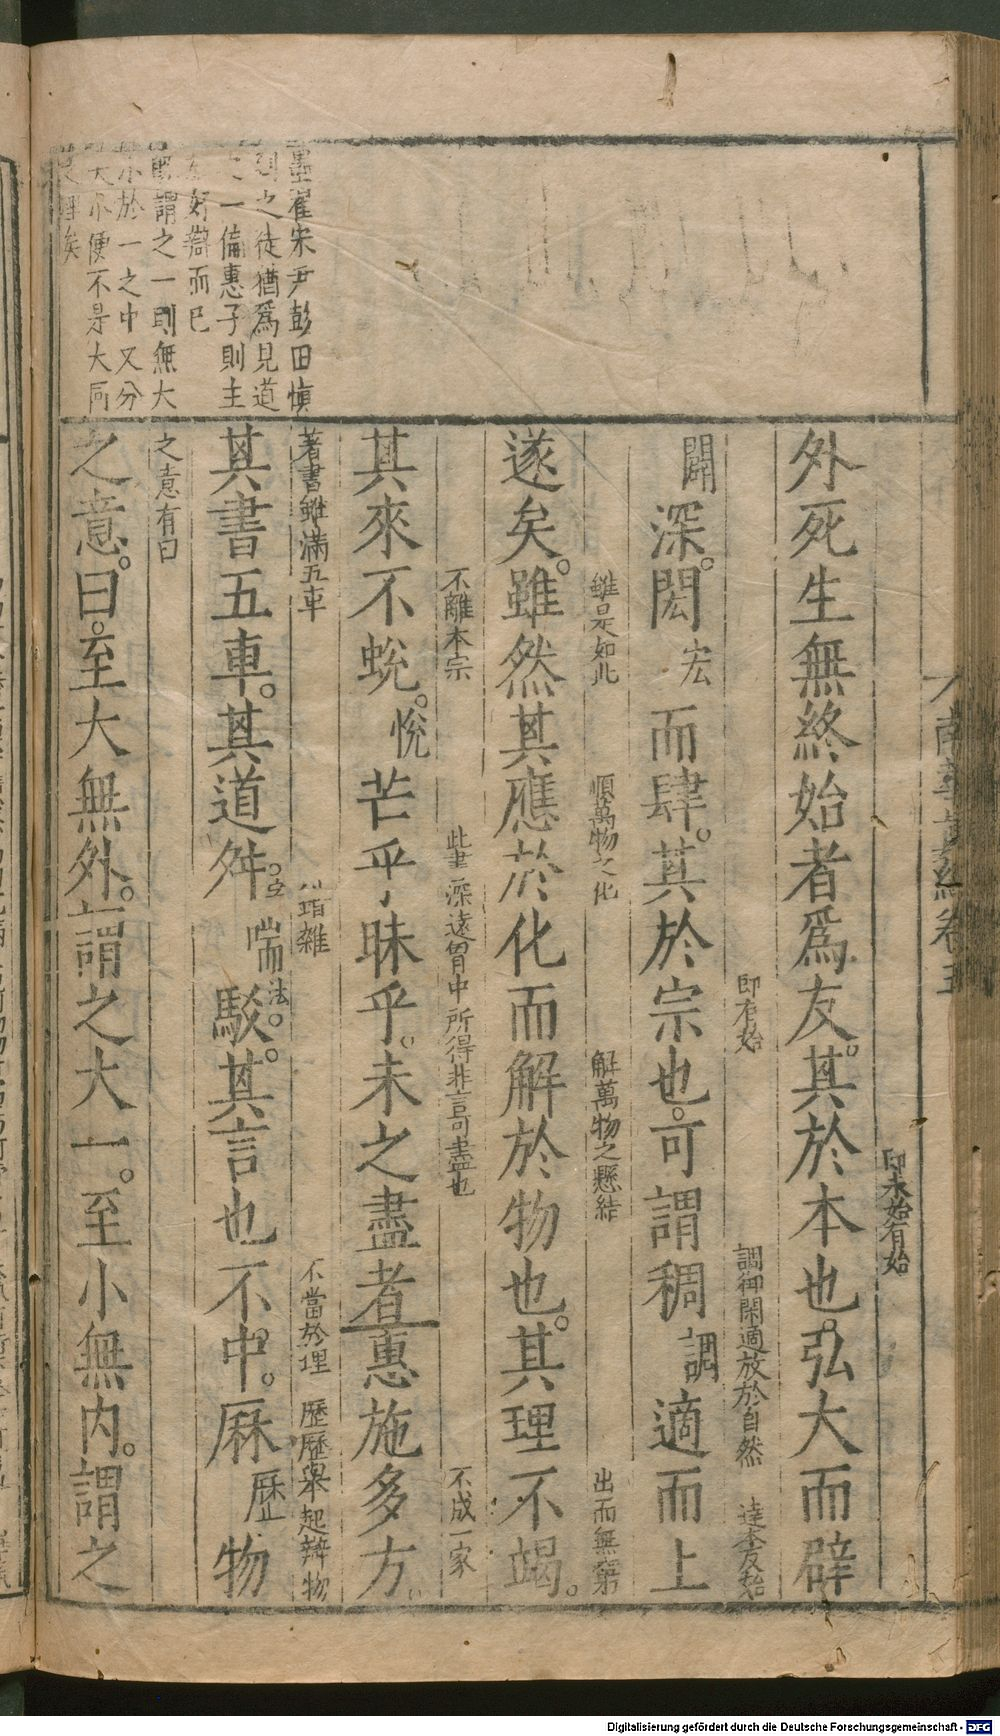 南華眞經卷五
卽未始有始
外死生無終始者爲友。其於本也。弘大而辟
卽有始
調御閑適放於自然
達本反始
闢深。閎宏而肆。其於宗也。可謂稠調適而上
雖是如此
順萬物之化
解萬物之懸結
出而無窮
遂矣。雖然其應於化而解於物也。其理不竭。
不離本宗
此書深遠胷中所得非言可盡也
不成一家
其來不蛻。悅芒乎昧乎。未之盡者惠施多方。
著書雖滿五車
踳雜
不當於理
歷歷舉起辨物
其書五車。其道舛。喘法。駁。其言也不中。厤歷物
之意有曰
之意。曰。至大無外。謂之大一。至小無内。謂之
墨翟宋尹彭田愼
列之徒猶爲見道
一偏惠子則主
好辯而已
旣謂之一則無大
小於一之中又分
大小便不是大同
之理矣
Digitalisierung gefördert durch die Deutsche Forschungsgemeinschaft - DFG